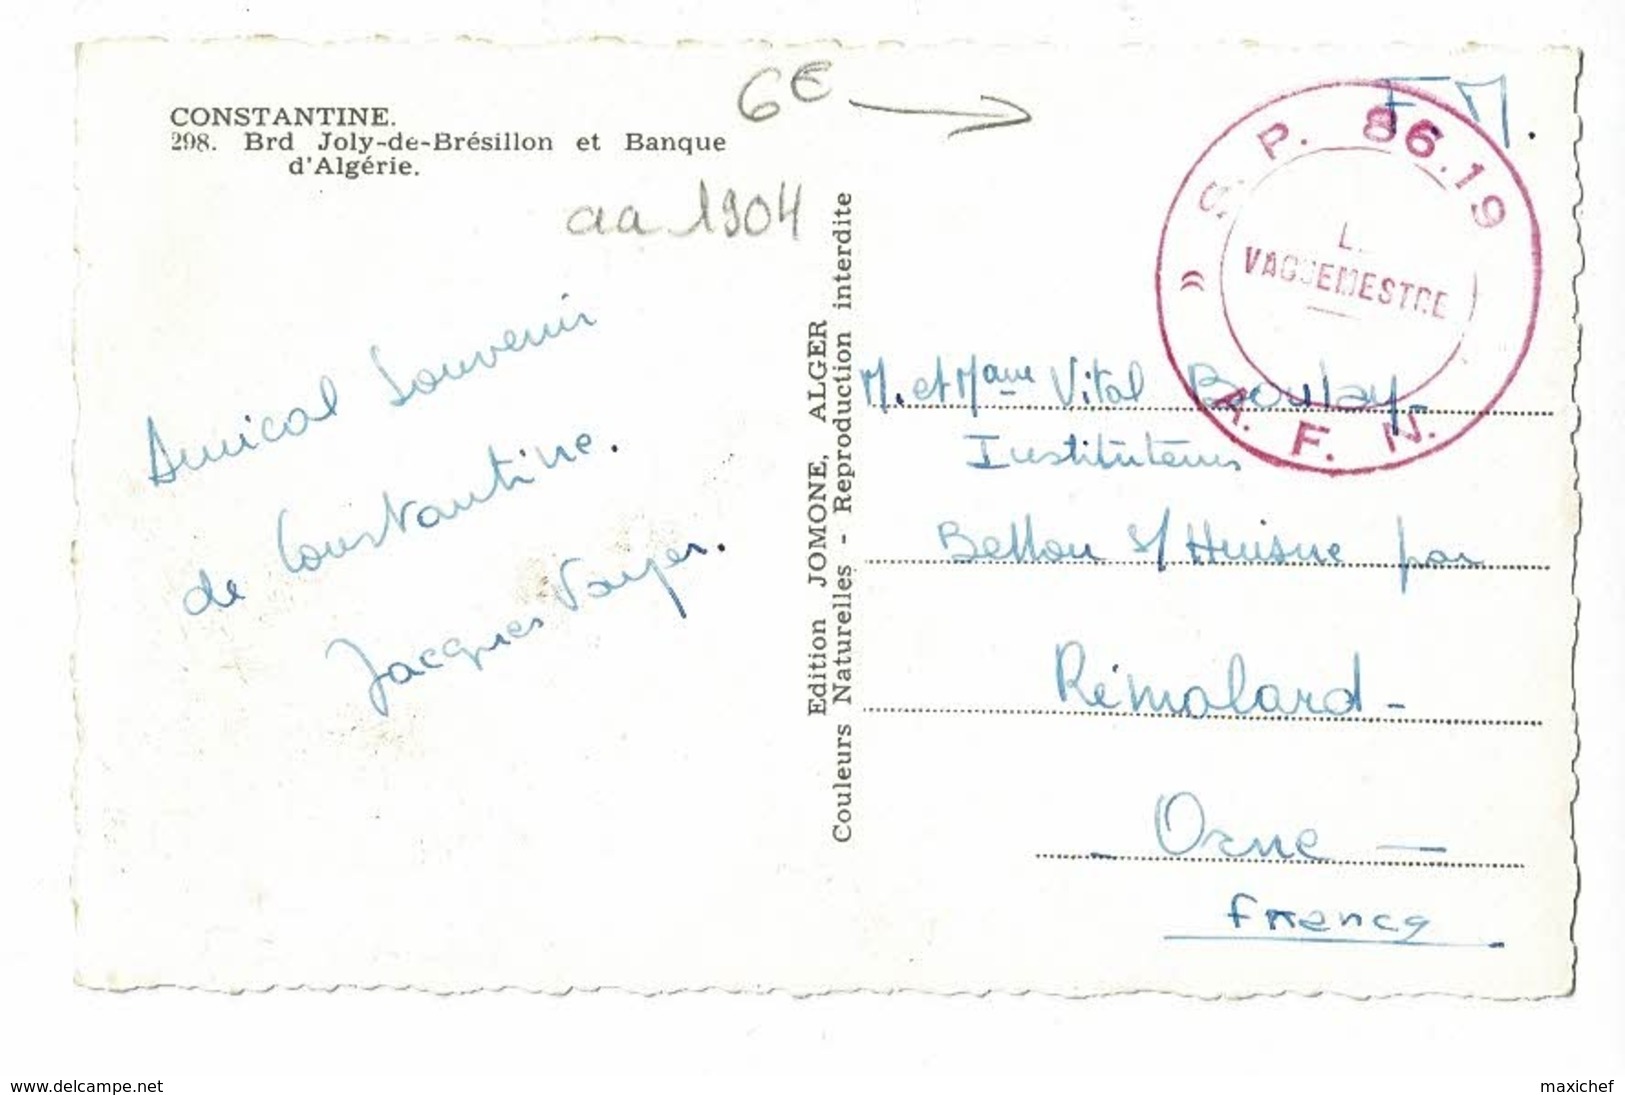 CONSTANTINE.
298. Brd Joly-de-Brésillon et Banque
d'Algérie.
6€
aa 1904
Amical Souvenir
de Constantine.
Jacques Voyer.
Edition JOMONE, ALGER
Couleurs Naturelles - Reproduction interdite
F M.
S. P. 86.19
VAGUEMESTRE
A. F. N.
M. et Mame Vital Boulay-
Instituteurs
Bellou s/ Huisne par
Rémalard -
- Orne -
France
www.delcampe.net
maxichef